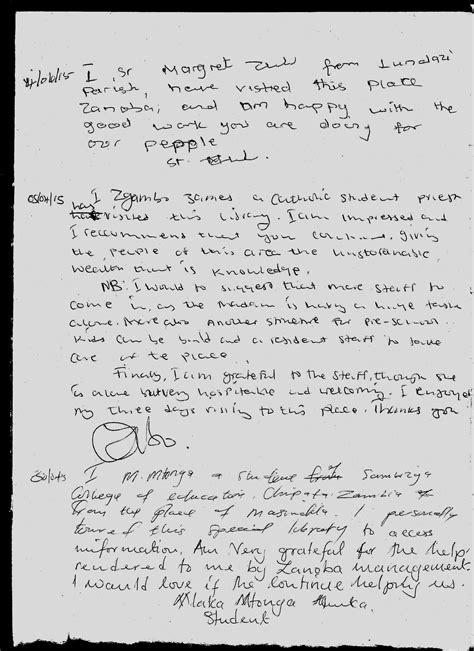 I, Sr Margret Zulu from Lundazi
Parish, have visted this place
Zanoba; and Iam happy with the
good work you are doing for
our people
Sr. Zulu.
05/04/15 I Zgambo James, a Catholic student priest
has visited this library. I am impressed and
I recommend that you continue giving
the people of this area the
weapon that is knowledge.
NB: I would to suggest that more staff to
come in, as the madam is having a huge task
alone. More also another structure for pre-school
kids can be build and a resident staff to take
care of the place.
Finally, I am grateful to the staff, though she
is alone but very hospitable and welcoming. I enjoyed
my three days visity to this place. Thanks you
I M. Mtonga a student from
College of education. Chipata. Zambia
From the place of . I personally
toured this special library to access
information. Am Very grateful for the help
rendered to me by management.
I would love if the continue helping us.
Mtonga
Student